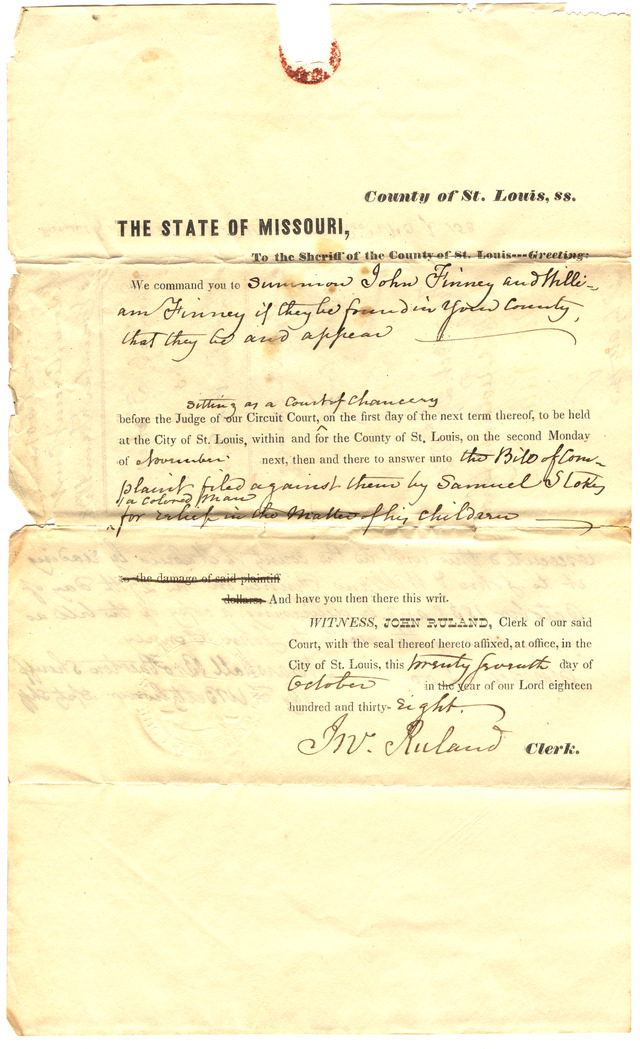 County of St. Louis, ss.
THE STATE OF MISSOURI,
To the Sheriff of the County of St. Louis---Greeting:
We command you to summon John Finney and Willi-
am Finney if they be found in your County,
that they be and appear
sitting as a Court of Chancery
before the Judge of our Circuit Court, on the first day of the next term thereof, to be held
at the City of St. Louis, within and for the County of St. Louis, on the second Monday
of November next, then and there to answer unto the Bill of Com-
plaint filed against them by Samuel Stokes
a colored man
for relief in the Matter of his children
to the damage of said plaintiff
dollars: And have you then there this writ.
WITNESS, JOHN RULAND, Clerk of our said
Court, with the seal thereof hereto affixed, at office, in the
City of St. Louis, this twenty seventh day of
October in the year of our Lord eighteen
hundred and thirty-eight.
Jno. Ruland Clerk.